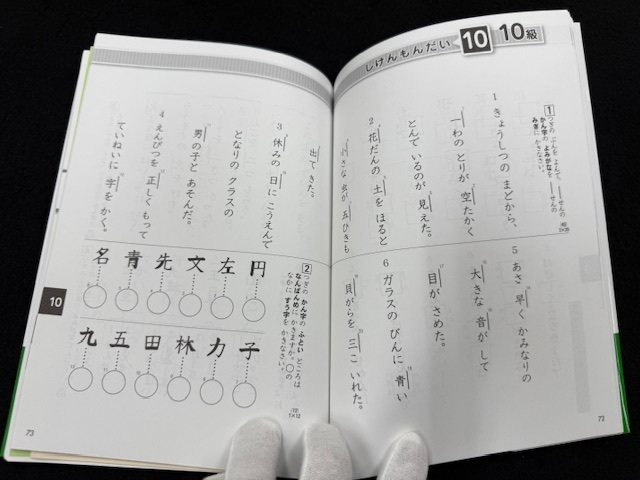 しけんもんだい 10 10級
1 つぎの ぶんを よんで、――せんの
かん字の よみがなを ――せんの
みぎに かきなさい。
1 きょうしつの まどから、
一わの とりが 空たかく
とんで いるのが 見えた。
2 花だんの 土を ほると
小さな 虫が 五ひきも
5 あさ 早く かみなりの
大きな 音が して
目が さめた。
6 ガラスの びんに 青い
貝がらを 三こ いれた。
72
出て きた。
3 休みの 日に こうえんで
となりの クラスの
男の子と あそんだ。
4 えんぴつを 正しく もって
ていねいに 字を かく。
2 つぎの かん字の ふとい ところは
なんばんめに かきますか。○の
なかに すう字を かきなさい。
円 左 文 先 青 名
子 力 林 田 五 九
10
73